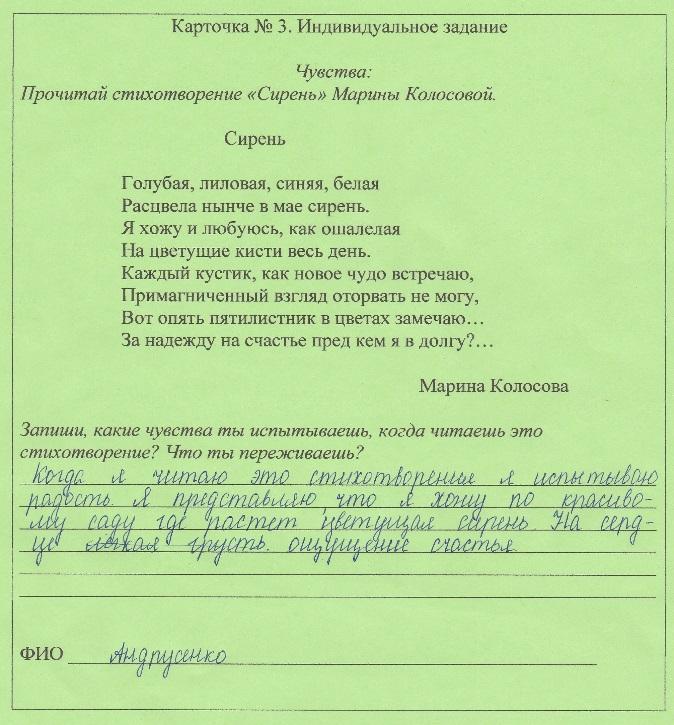 Карточка № 3. Индивидуальное задание
Чувства:
Прочитай стихотворение «Сирень» Марины Колосовой.
Сирень
Голубая, лиловая, синяя, белая
Расцвела нынче в мае сирень.
Я хожу и любуюсь, как ошалелая
На цветущие кисти весь день.
Каждый кустик, как новое чудо встречаю,
Примагниченный взгляд оторвать не могу,
Вот опять пятилистник в цветах замечаю…
За надежду на счастье пред кем я в долгу?…
Марина Колосова
Запиши, какие чувства ты испытываешь, когда читаешь это
стихотворение? Что ты переживаешь?
Когда я читаю это стихотворения я испытываю
радость. Я представляю, что я хожу по красиво-
му саду где растет цветущая сирень. На серд-
це легкая грусть. ощущение счастья.
ФИО Андрусенко